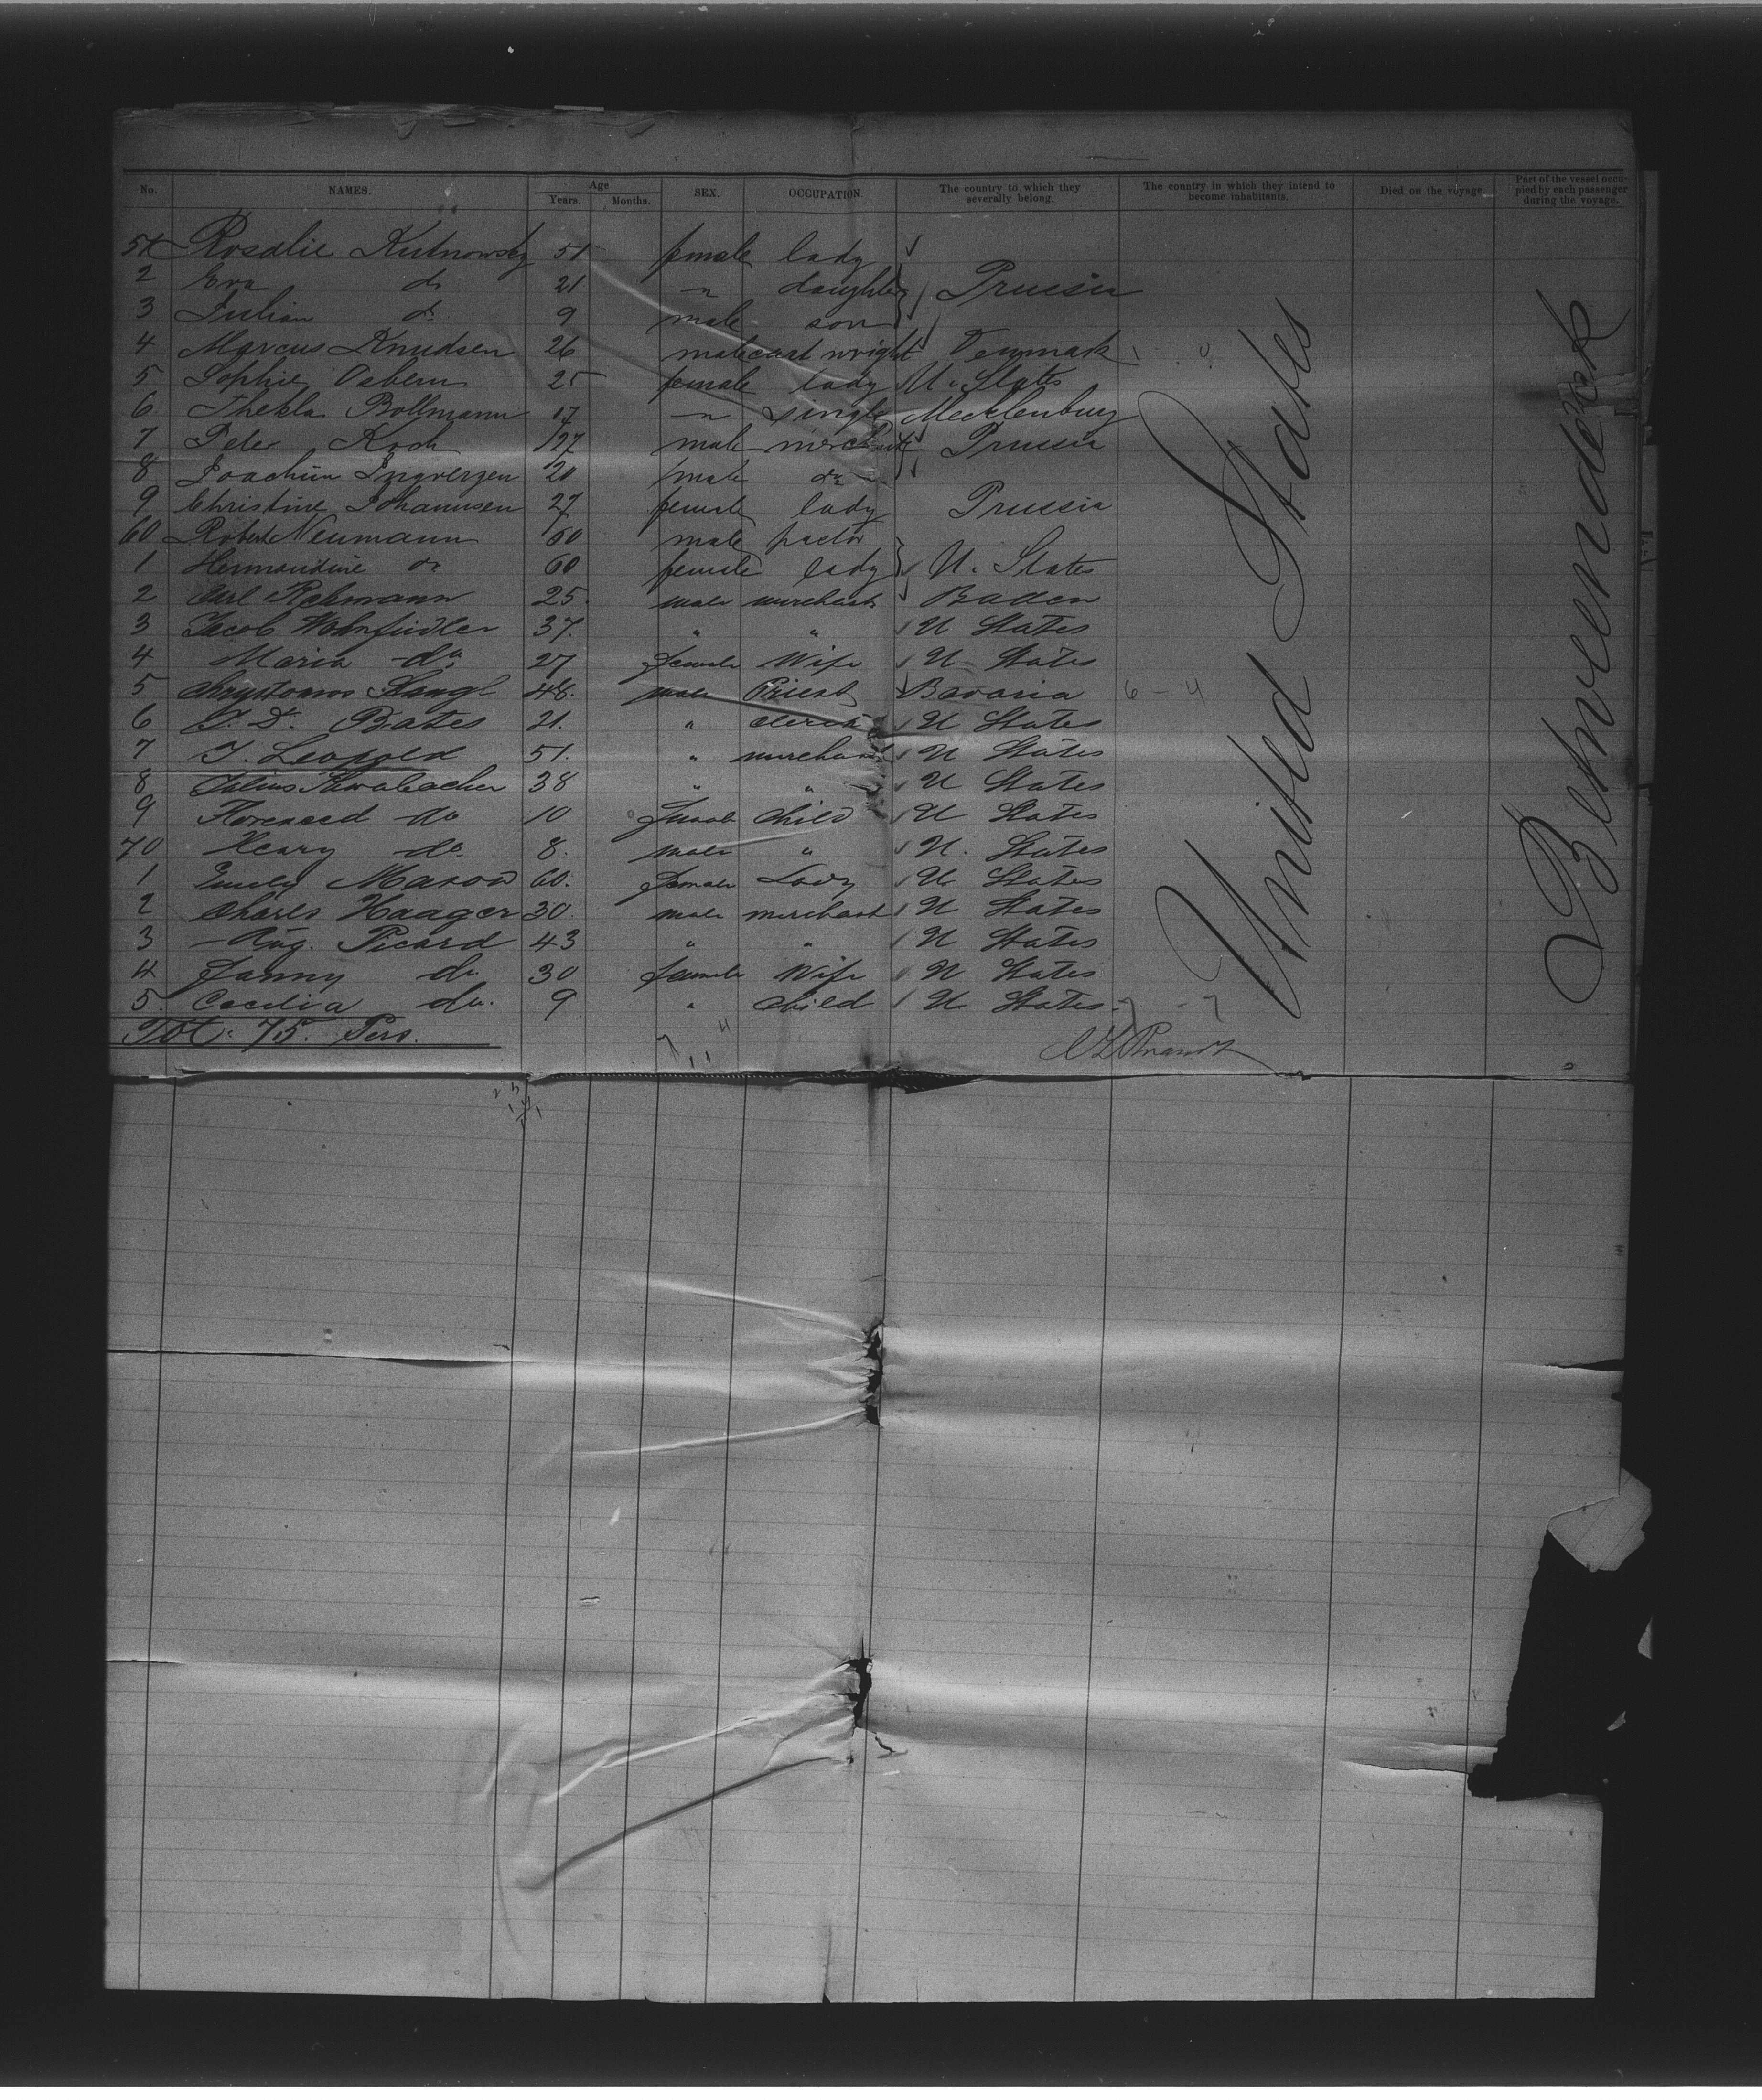 No. NAMES. Age Years. Months. SEX. OCCUPATION. The country to which they severally belong. The country in which they intend to become inhabitants. Died on the voyage. Part of the vessel occupied by each passenger during the voyage.
51 Rosalie Kutnowsky 51 female lady
2 Eva do 21 " daughter Prussia
3 Julian do 9 male son
4 Marcus Knudsen 26 male cart wright Denmark
5 Sophie 25 female lady U. States
6 Thekla Bollmann 17 " single Mecklenburg
7 Peter Koch 27 male merchant Prussia
8 Joachim Ingwersen 20 male do
9 Christine Johannsen 27 female lady Prussia
60 Robert Neumann 60 male factor
1 Hermandine do 60 female lady U. States
2 Carl Rehmann 25. male merchant Baden
3 Jacob 37. " " U States
4 Maria do 27 female Wife U States
5 48. male Priest Bavaria 6 - 4
6 Bates 21. " clerck U States
7 J. Leopold 51. " merchant U States
8 Julius Schwabacher 38 " " U States
9 do 10 female child U States
70 Henry do. 8. male " U. States
1 Emely 60. female Lady U States
2 Charls Haager 30. male merchant U States
3 Aug. Picard 43 " " U States
4 Fanny do 30 female Wife U States
5. Cecilia do. 9 " child U States
Tot: 75. Pers.
United States
Betweendeck